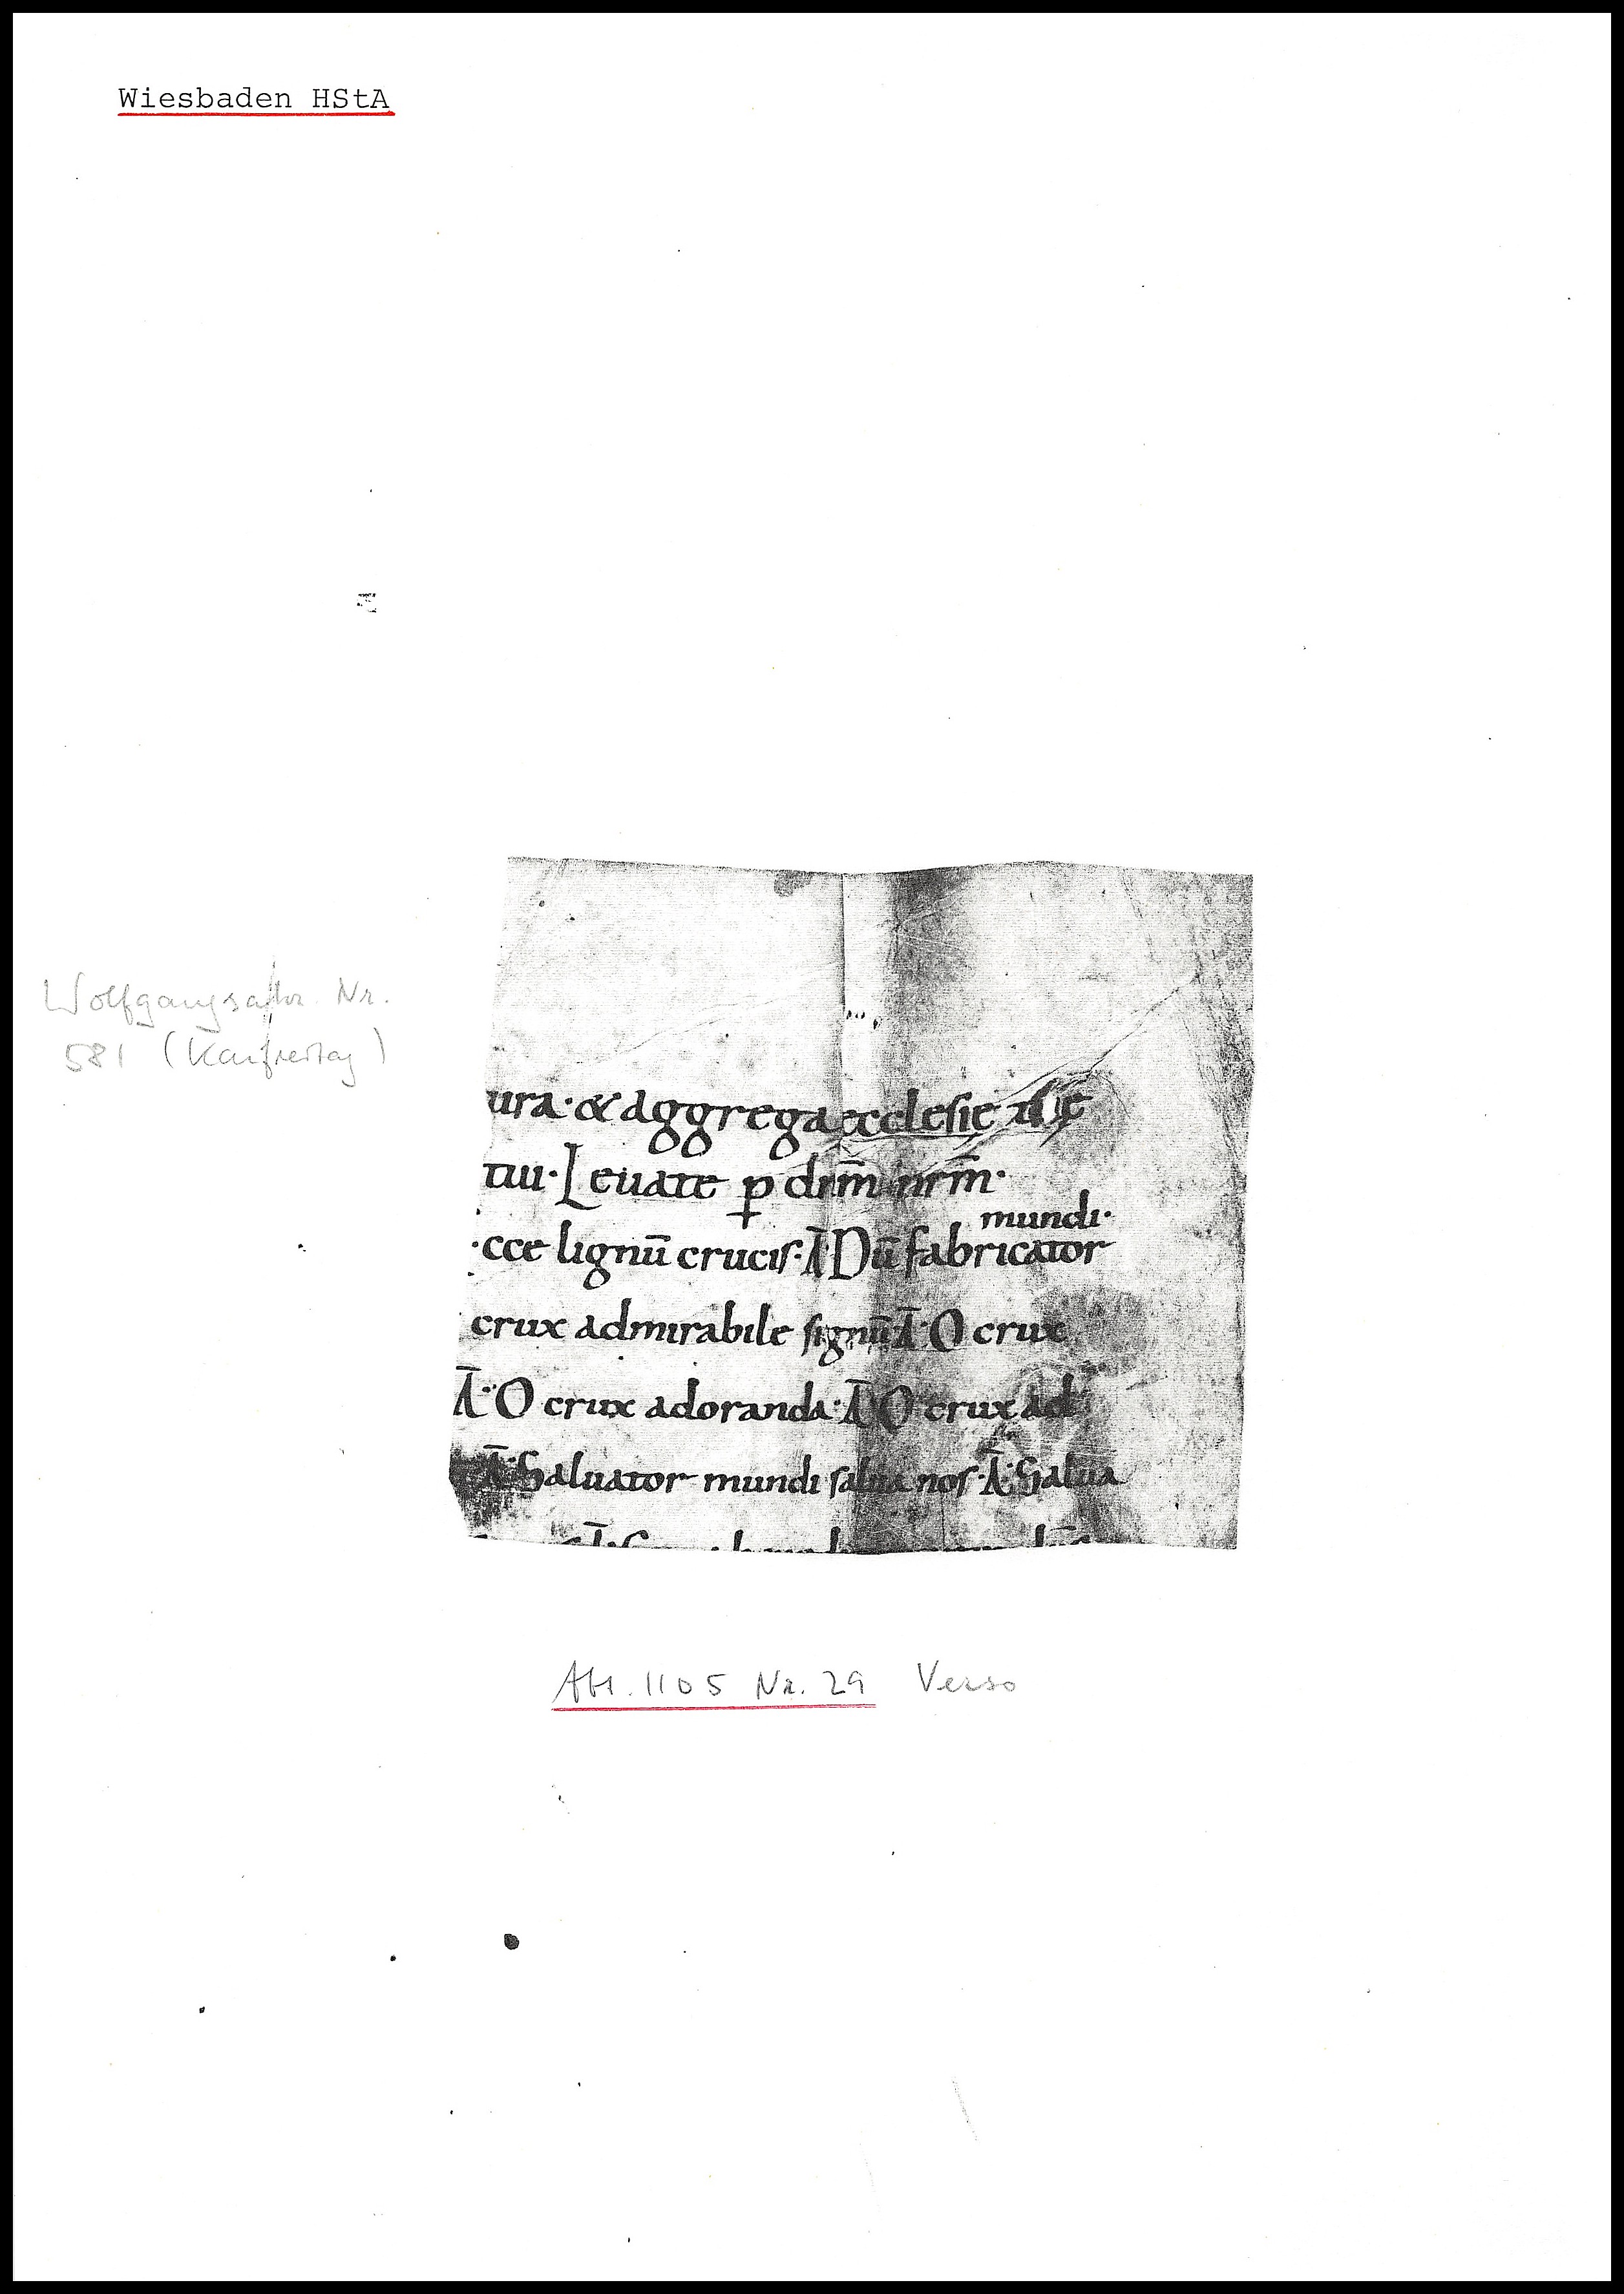 Wiesbaden HStA
Wolfgangsakr. Nr.
581 (Karfreitag)
ura · & aggrega ecclesie tue
tui · Leuate p dnm nrm ·
mundi ·
cce lignū crucis · A Dū fabricator
crux admirabile signū A O crux
A O crux adoranda · A O crux ad
A Saluator mundi salua nos · A Salua
Abt. 1105 Nr. 29 Verso